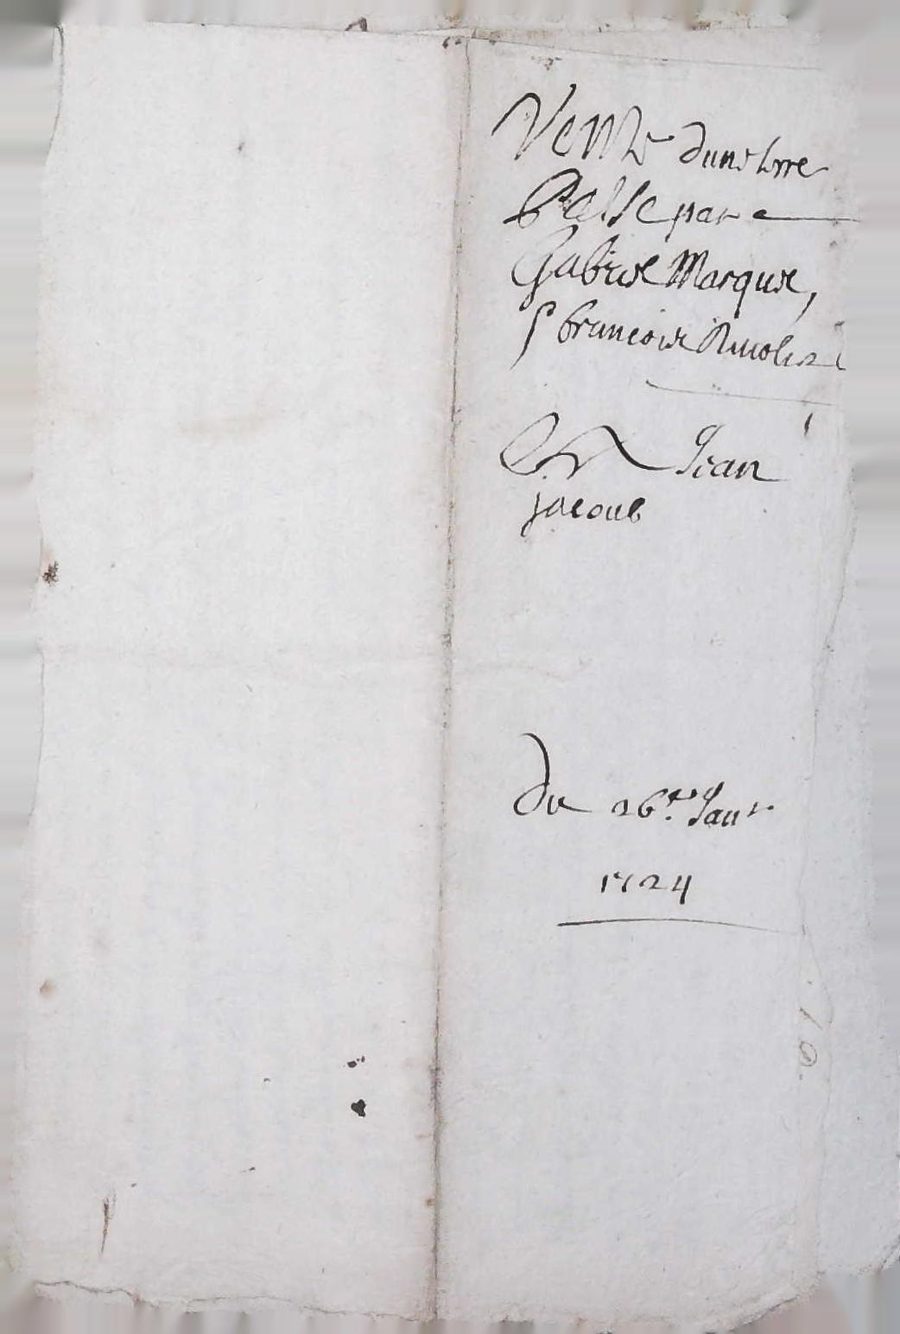 Vente dune terre
Passe par
Gabriel Marquis,
francois
Jean
Jacoub
du 26.e Janr.
1724